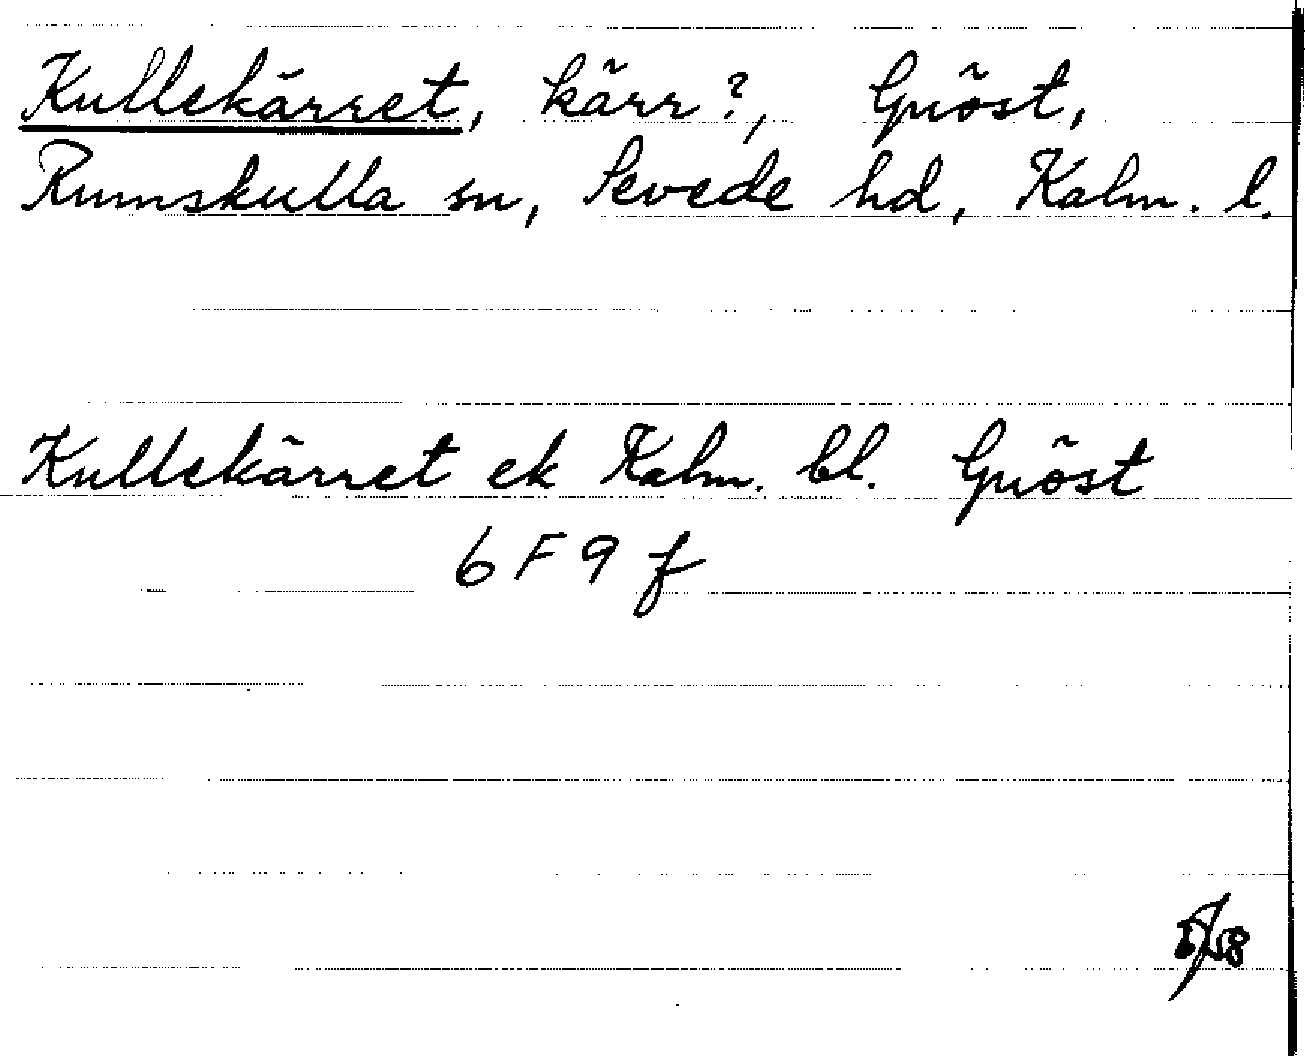 Kullekärret, kärr?, Gröst,
Rumskulla sn, Sevede hd, Kalm. l.
Kullekärret ek Kalm. bl. Gröst
6 F 9 f